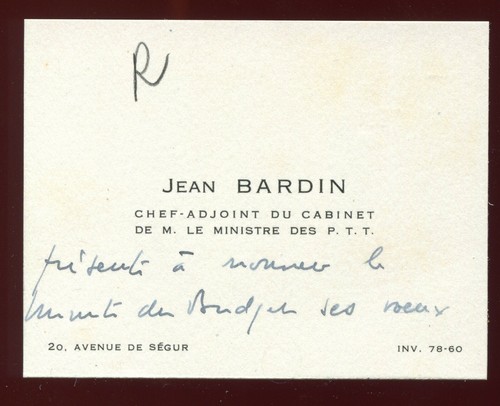 R
JEAN BARDIN
CHEF-ADJOINT DU CABINET
DE M. LE MINISTRE DES P. T. T.
présente à monsieur le
ministre du Budget ses vœux
20, AVENUE DE SÉGUR
INV. 78-60